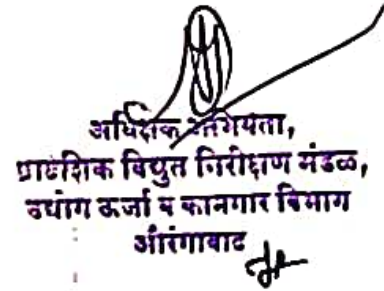 अधिक्षक अभियंता,
प्रादेशिक विद्युत निरीक्षण मंडळ,
उद्योग ऊर्जा व कामगार विभाग
औरंगाबाद